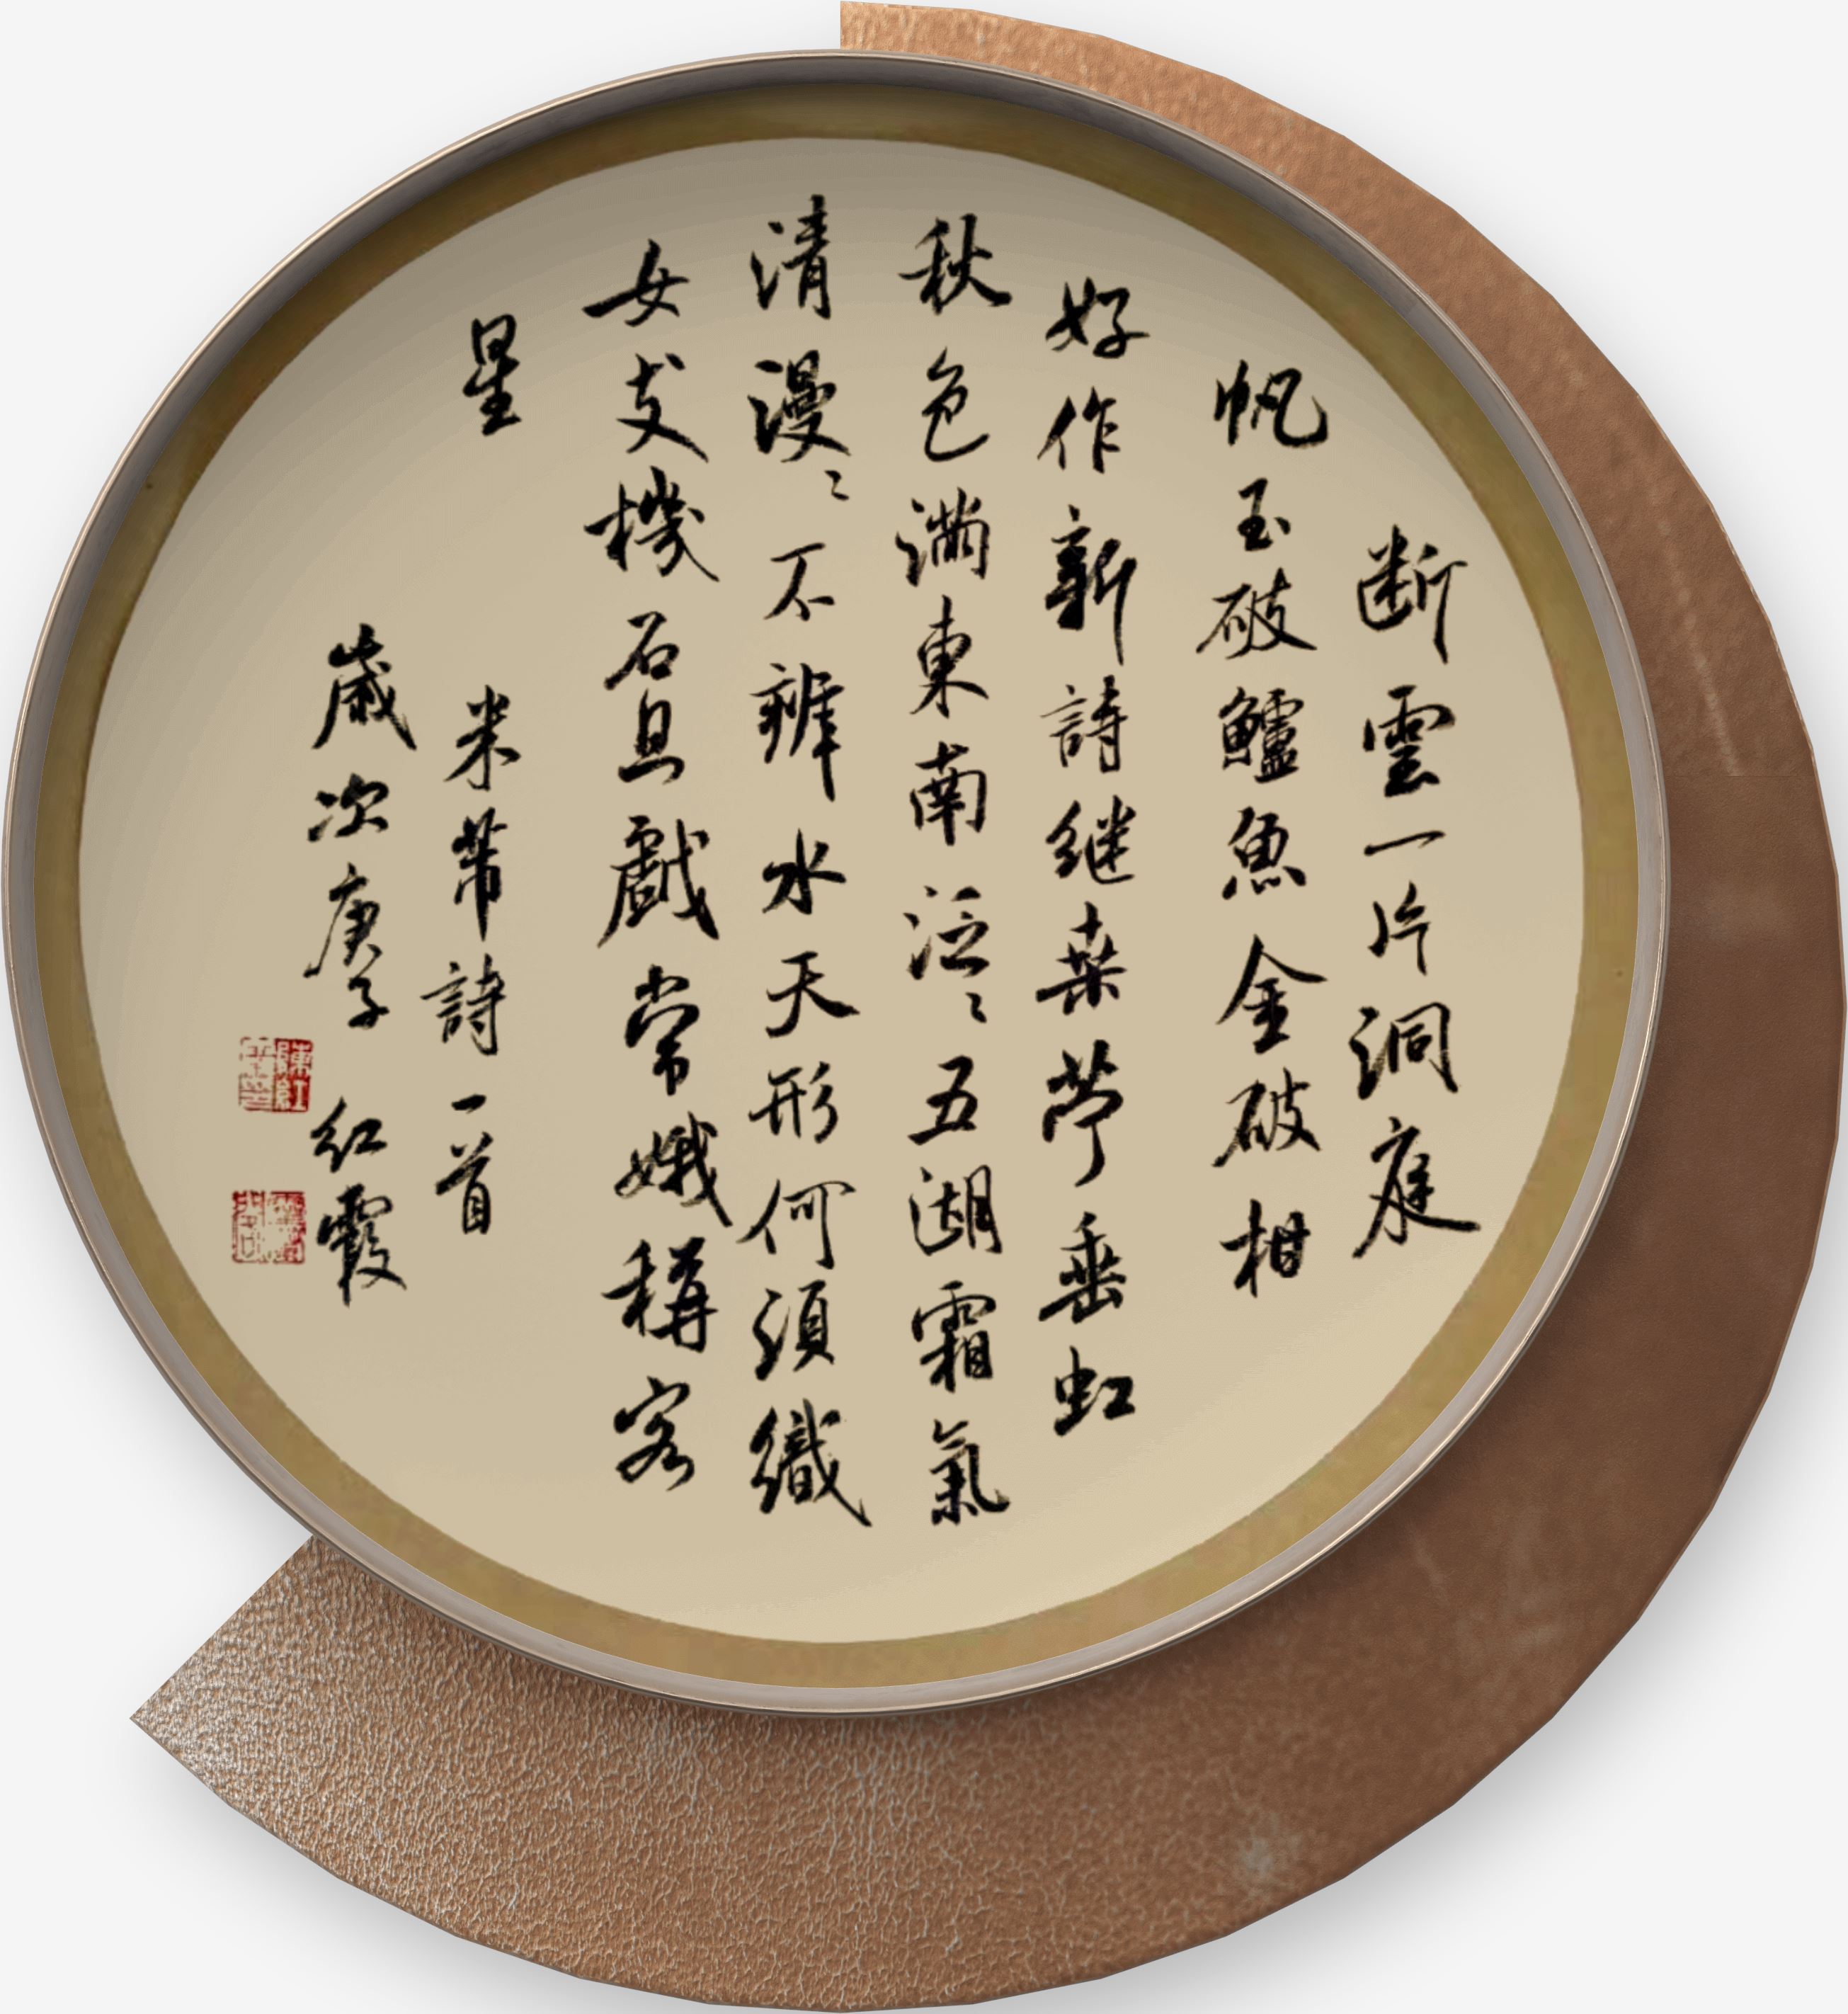 断雲一片洞庭
帆玉破鱸魚金破柑
好作新詩继桑苧垂虹
秋色滿東南泛〻五湖霜氣
清漫〻不辨水天形何須織
女支機石且戲常娥稱客
星
米芾詩一首
歲次庚子 红霞